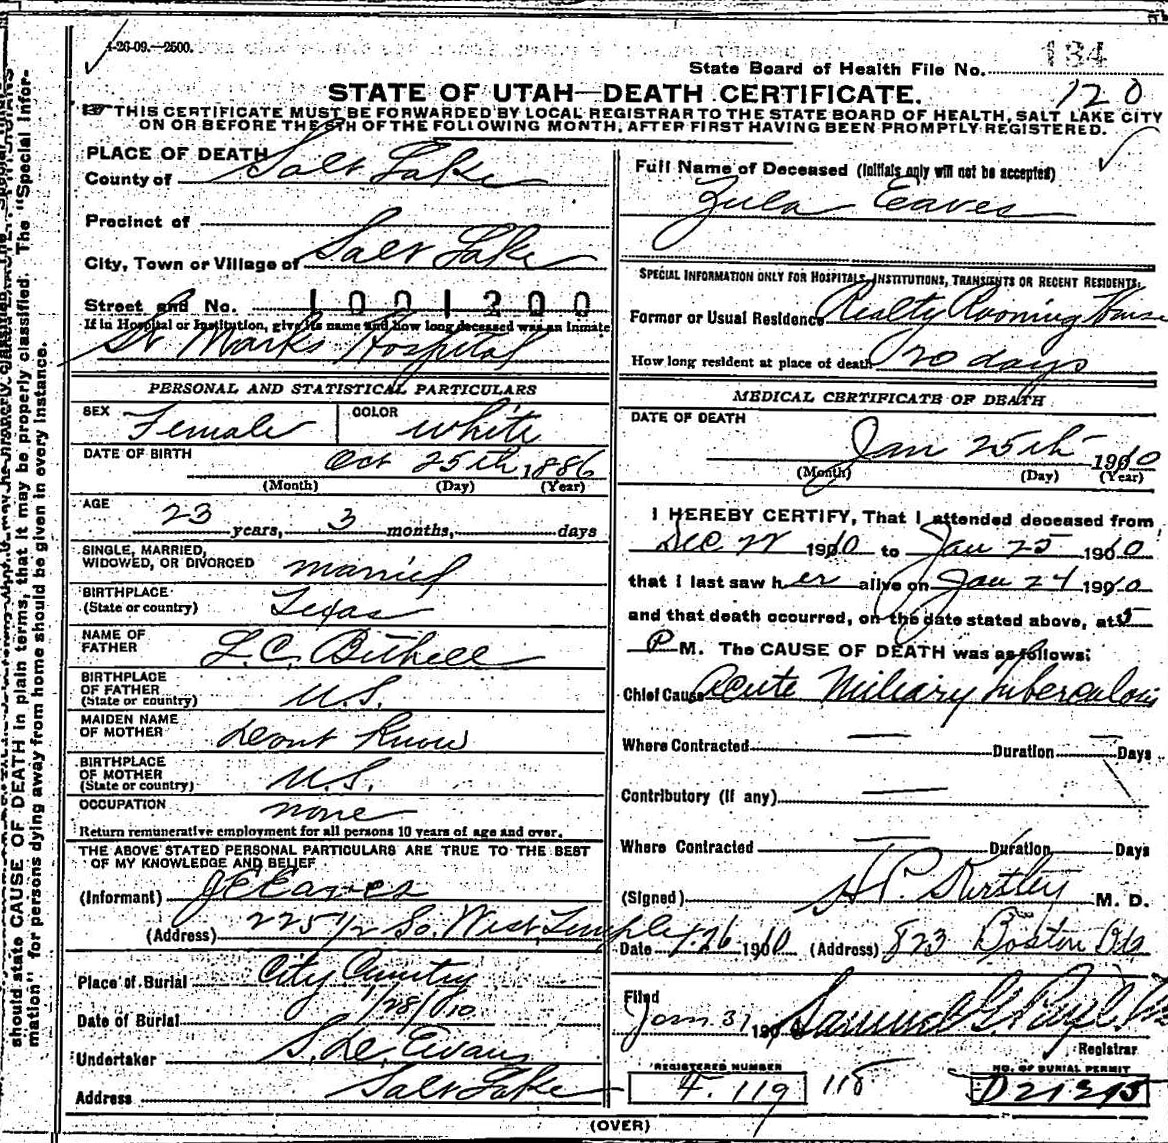 4-26-09.—2500.
State Board of Health File No. 134
120
STATE OF UTAH—DEATH CERTIFICATE.
THIS CERTIFICATE MUST BE FORWARDED BY LOCAL REGISTRAR TO THE STATE BOARD OF HEALTH, SALT LAKE CITY
ON OR BEFORE THE 5TH OF THE FOLLOWING MONTH, AFTER FIRST HAVING BEEN PROMPTLY REGISTERED.
PLACE OF DEATH
County of Salt Lake
Precinct of
City, Town or Village of Salt Lake
Street and No. 1001200
If in Hospital or Institution, give its name and how long deceased was an inmate
St Marks Hospital
PERSONAL AND STATISTICAL PARTICULARS
SEX Female COLOR White
DATE OF BIRTH Oct 25th, 1886
(Month) (Day) (Year)
AGE
23 years, 3 months, days
SINGLE, MARRIED,
WIDOWED, OR DIVORCED married
BIRTHPLACE
(State or country) Texas
NAME OF
FATHER L.C. Bithell
BIRTHPLACE
OF FATHER
(State or country) U.S.
MAIDEN NAME
OF MOTHER dont Know
BIRTHPLACE
OF MOTHER
(State or country) U.S.
OCCUPATION none
Return remunerative employment for all persons 10 years of age and over.
THE ABOVE STATED PERSONAL PARTICULARS ARE TRUE TO THE BEST
OF MY KNOWLEDGE AND BELIEF
(Informant) J E Eaves
(Address) 225 1/2 So. West Temple
Place of Burial City
Date of Burial 1/28/10
Undertaker Evans
Address Salt Lake
Full Name of Deceased (Initials only will not be accepted)
Zula Eaves
SPECIAL INFORMATION ONLY FOR HOSPITALS, INSTITUTIONS, TRANSIENTS OR RECENT RESIDENTS.
Former or Usual Residence Realty Rooming House
How long resident at place of death 20 days
MEDICAL CERTIFICATE OF DEATH
DATE OF DEATH
Jan 25th 1910
(Month) (Day) (Year)
I HEREBY CERTIFY, That I attended deceased from
Dec 22 1910 to Jan 25 1910
that I last saw her alive on Jan 24 1910
and that death occurred, on the date stated above, at 5
P M. The CAUSE OF DEATH was as follows:
Chief Cause Acute Miliary Tuberculosis
Where Contracted — Duration — Days
Contributory (if any) —
Where Contracted — Duration Days
(Signed) H P. Kirtley M. D.
Date 1.26 1910 (Address) 823 Boston Blk
Filed
Jan. 31, 190 Samuel G. Paul
Registrar
REGISTERED NUMBER
F. 119 118
NO. OF BURIAL PERMIT
D21295
(OVER)
should state CAUSE OF DEATH in plain terms, that it may be properly classified. The "Special Infor-
mation" for persons dying away from home should be given in every instance.